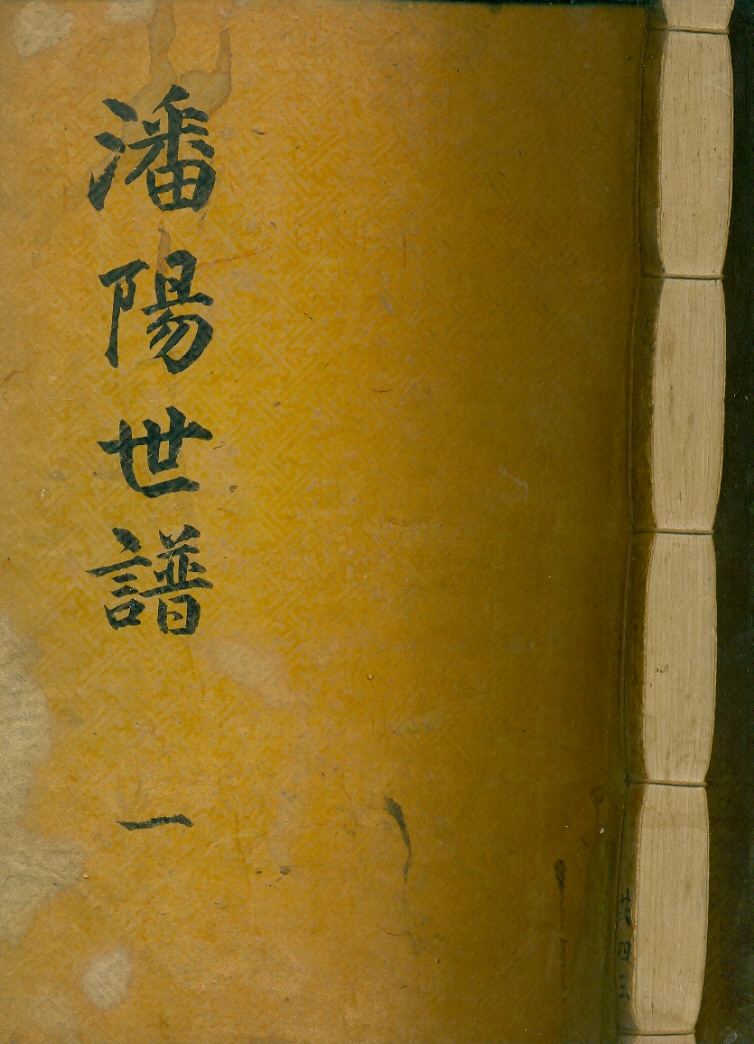 潘陽世譜 一